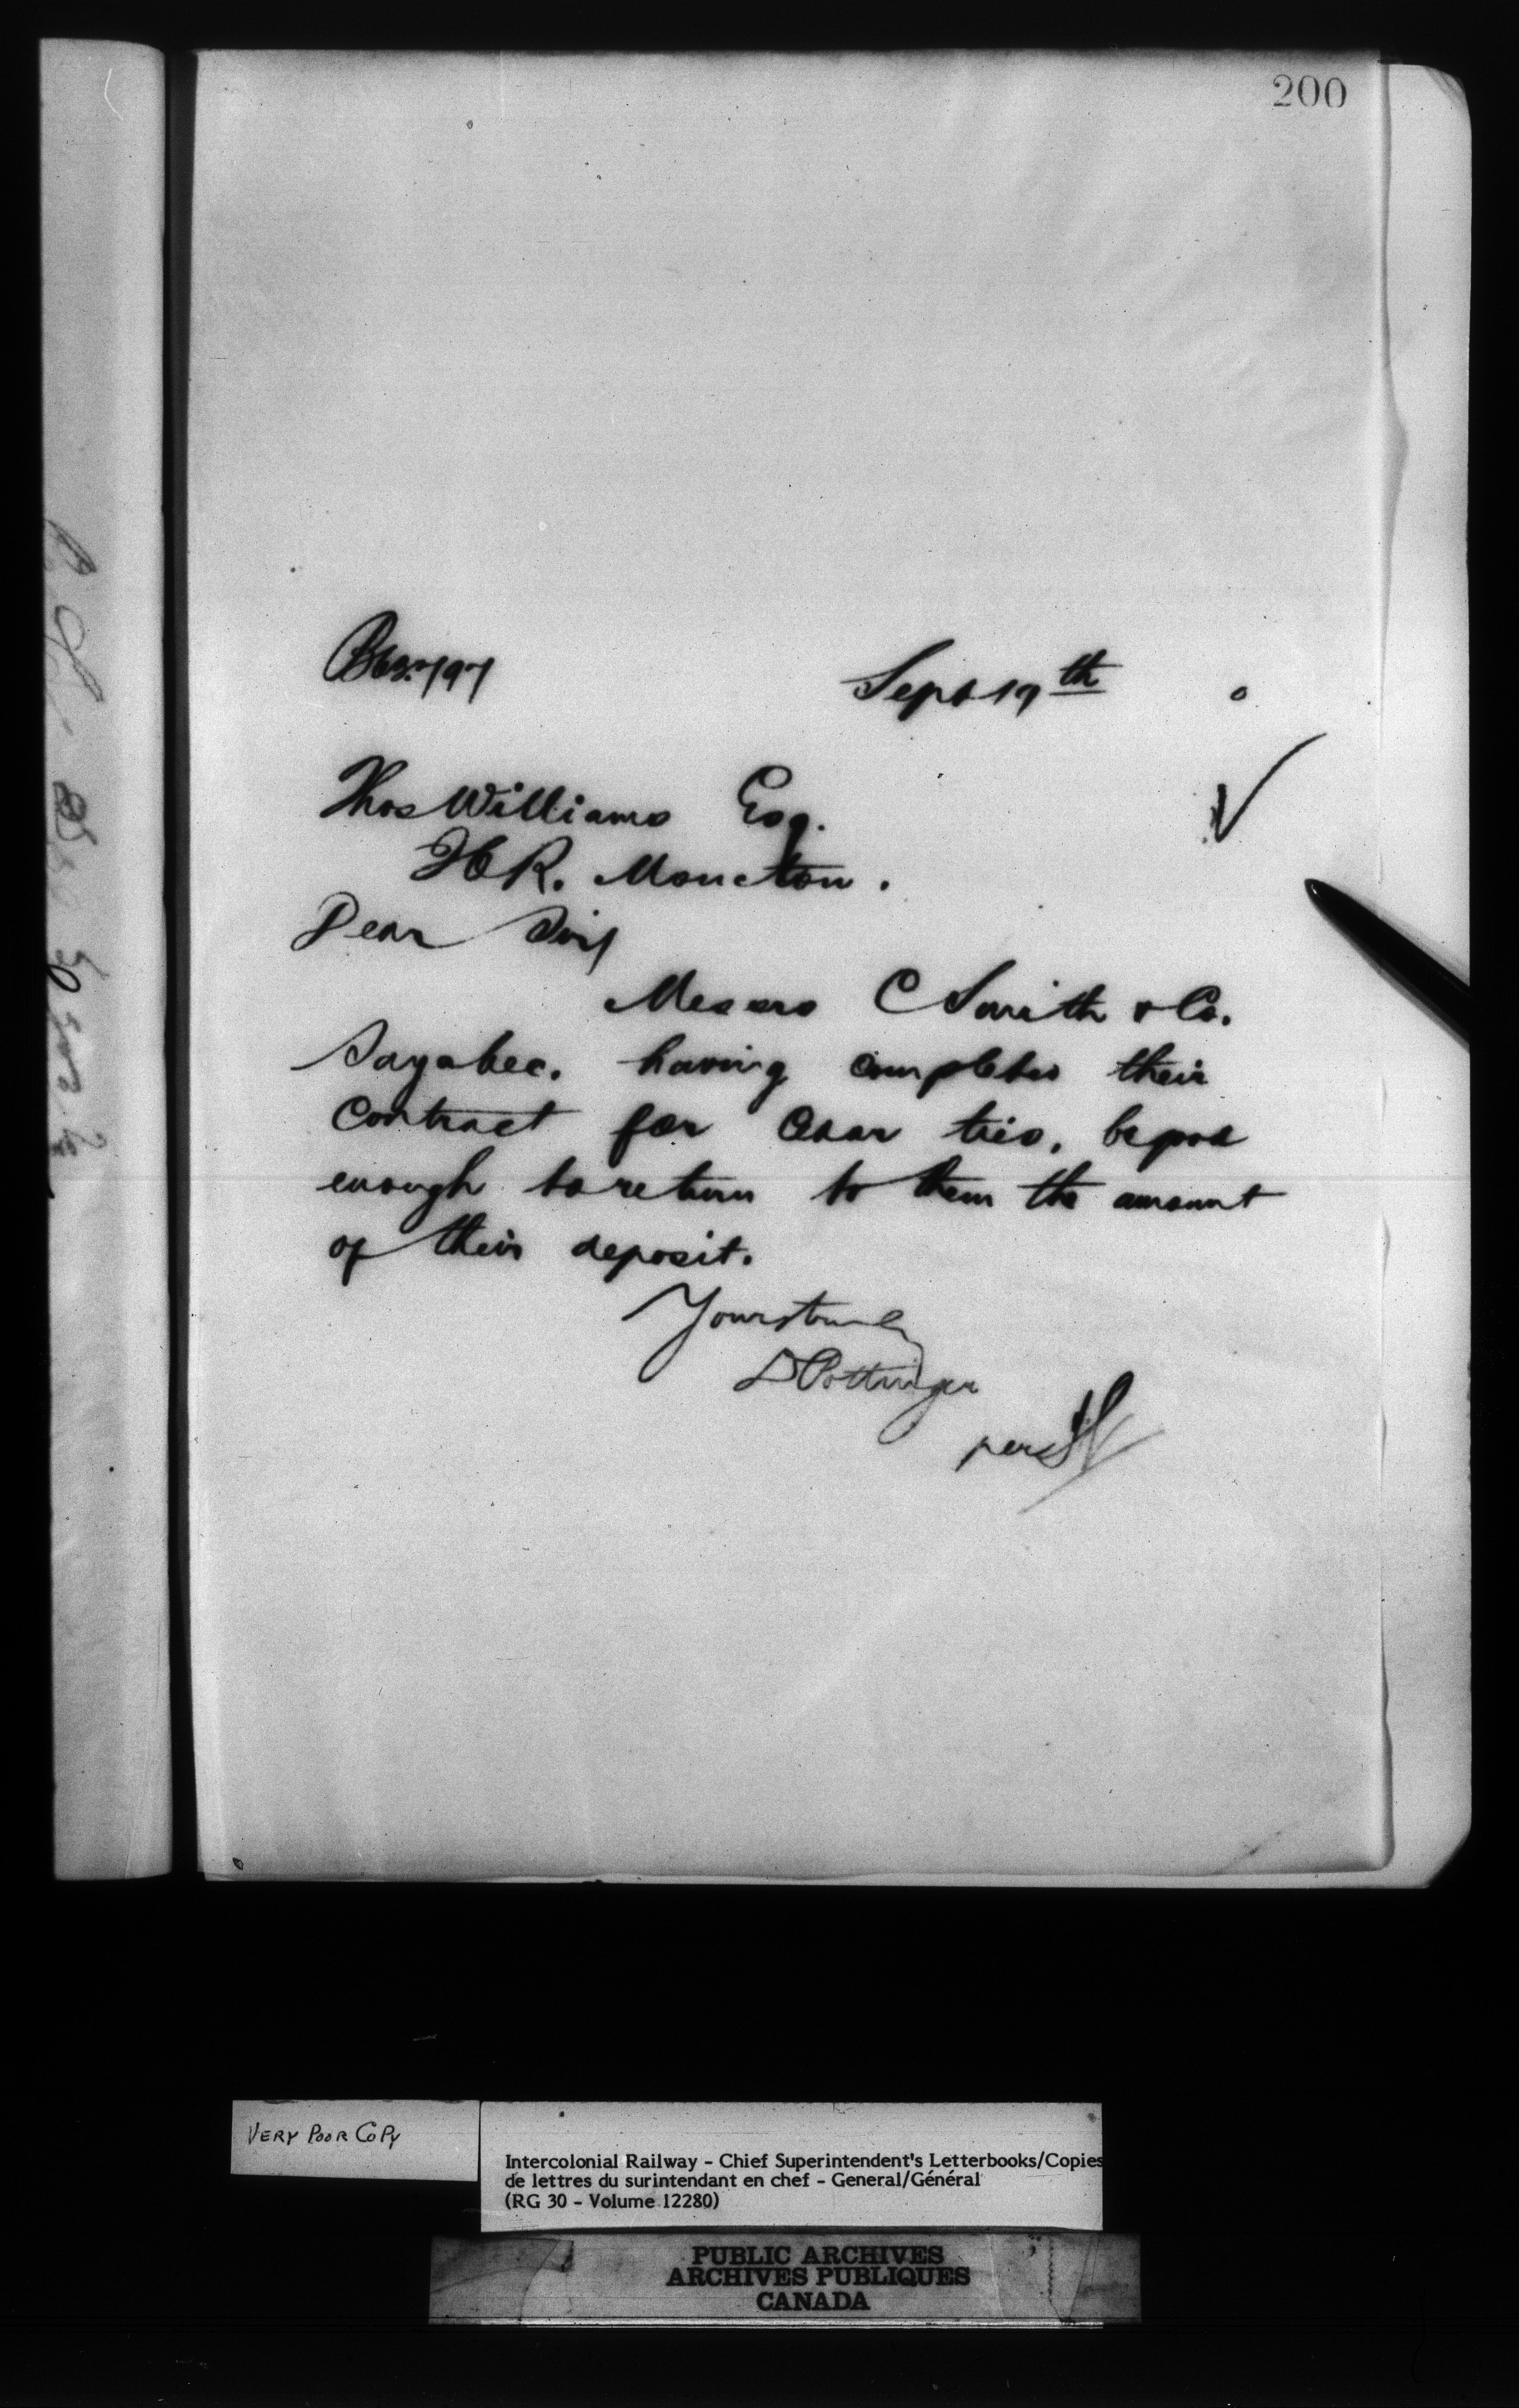 200
Sept 19th
Thos Williams Esq.
Moncton.
Dear Sir
Messrs C Smith & Co.
Sayabec. having completed their
contract for Cedar ties, be good
enough to return to them the amount
of their deposit.
Yours truly
D Pottinger
per
VERY POOR COPY
Intercolonial Railway - Chief Superintendent's Letterbooks/Copies
de lettres du surintendant en chef - General/Général
(RG 30 - Volume 12280)
PUBLIC ARCHIVES
ARCHIVES PUBLIQUES
CANADA